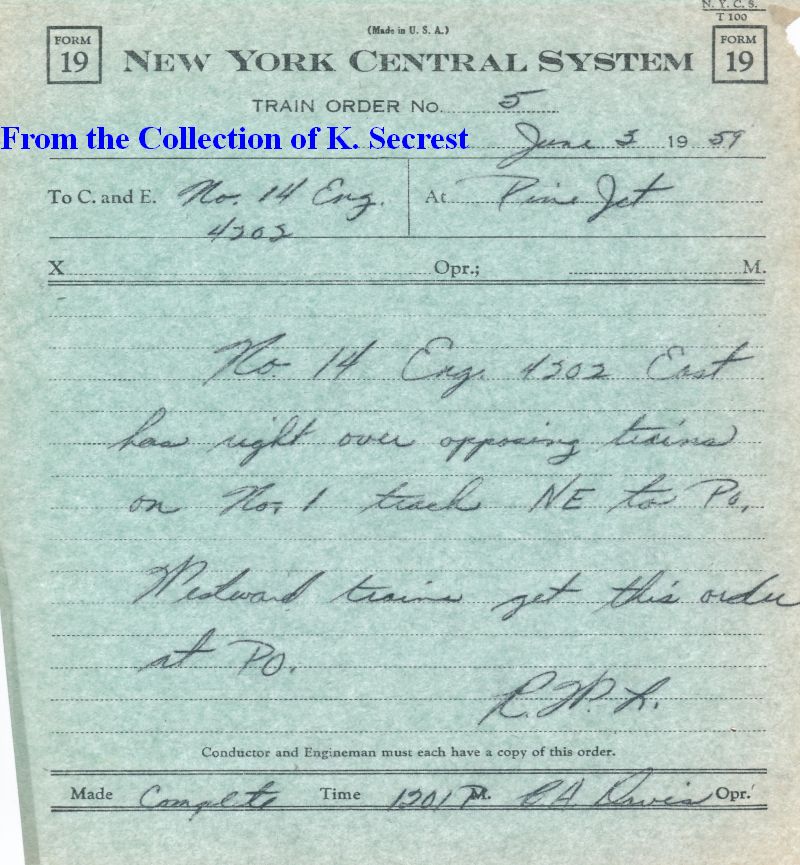 N. Y. C. S.
T 100
(Made in U. S. A.)
FORM 19
NEW YORK CENTRAL SYSTEM
FORM 19
TRAIN ORDER No. 5
From the Collection of K. Secrest
June 5 19 59
To C. and E. No. 14 Eng. At Pine Jct
4202
X Opr.; M.
No. 14 Eng. 4202 East
has right over opposing trains
on No. 1 track NE to PO.
Westward trains get this order
at PO.
R. W. L.
Conductor and Engineman must each have a copy of this order.
Made Complete Time 1201 P M. Davis Opr.